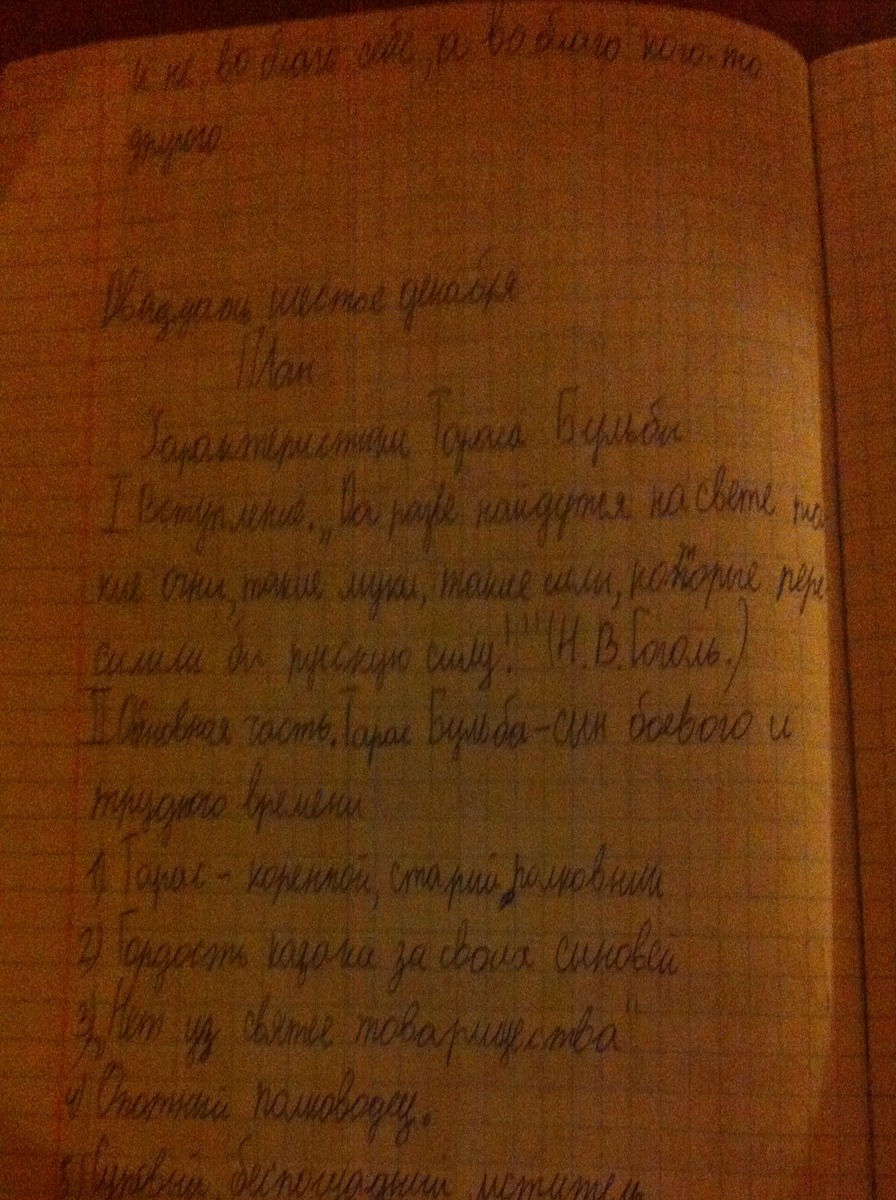 и не во благо себе, а во благо кого-то
другого
Двадцать шестое декабря
План
Характеристики Тараса Бульбы
I Вступление. „Да разве найдутся на свете та-
кие огни, такие муки, такие силы, которые пере-
силили бы русскую силу!" (Н.В.Гоголь.)
II Основная часть. Тарас Бульба - сын боевого и
трудного времени
1) Тарас - коренной, старый полковник
2) Гордость казака за своих сыновей
3) „Нет уз святее товарищества"
4) Опытный полководец.
5) Суровый, беспощадный мститель